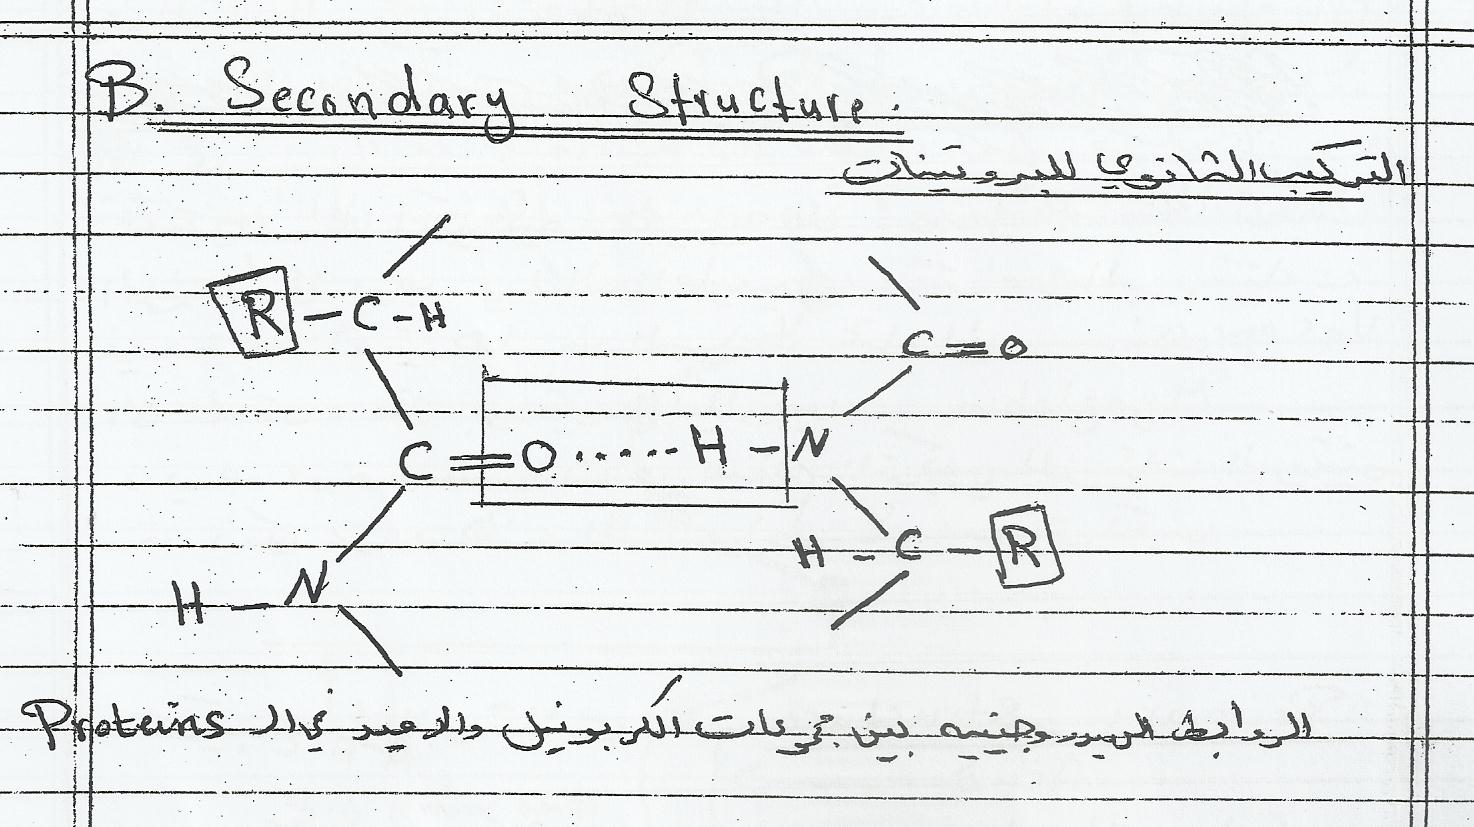 B. Secondary Structure.
التركيب الثانوي للبروتينات
R – C – H
C = O
C = O ...... H – N
H – C – R
H – N
الروابط الهيدروجنيه بين مجموعات الكربونيل والاميد في ال Proteins